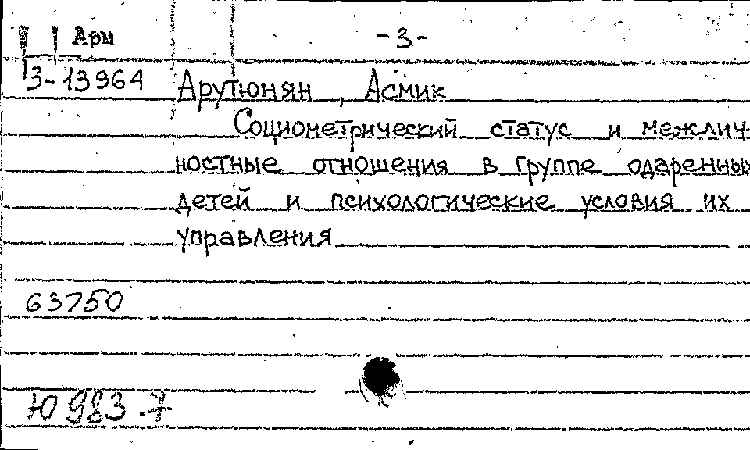 Ары -3-
3-13964 Арутюнян, Асмик
Социометрический статус и межлич-
ностные отношения в группе одаренных
детей и психологические условия их
управления
63750
Ю 983.7